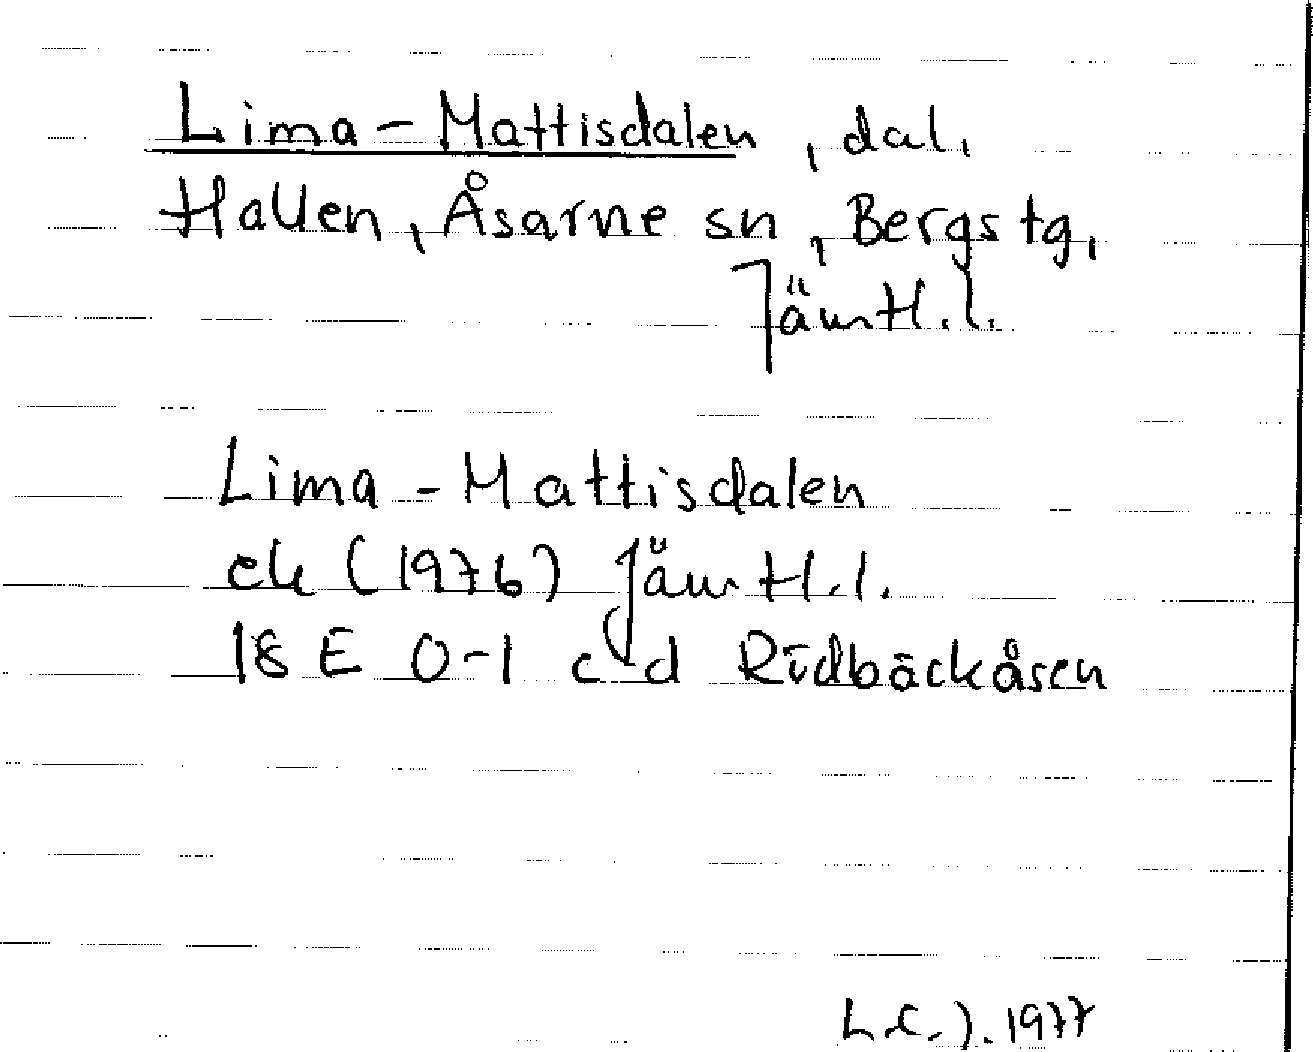 Lima-Mattisdalen, dal,
Hallen, Åsarne sn, Bergs tg,
Jämtl. l.
Lima-Mattisdalen
ek (1976) Jämtl. l.
18 E 0-1 c d Rödbäckåsen
1977